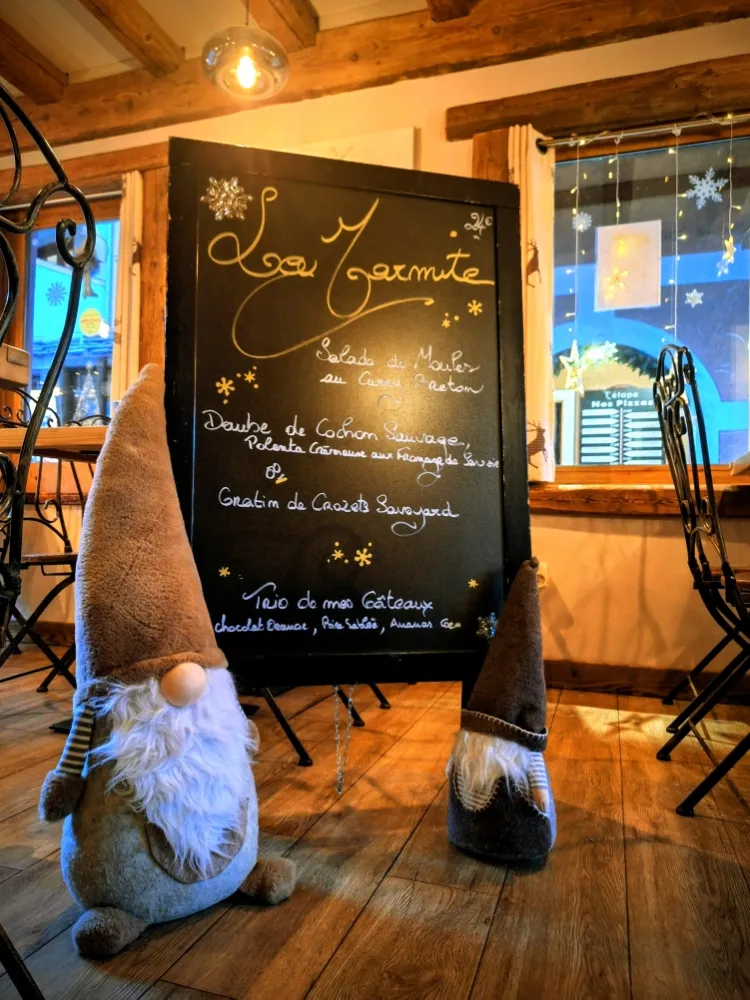 24€
La Marmite
Salade de Moules
au Curry Breton
Daube de Cochon Sauvage,
Polenta Crémeuse aux Fromage de Savoie
ou
Gratin de Crozets Savoyard
Trio de mes Gâteaux
chocolat, Poire Sablée, Ananas Coco
L'étape
Nos Pizzas